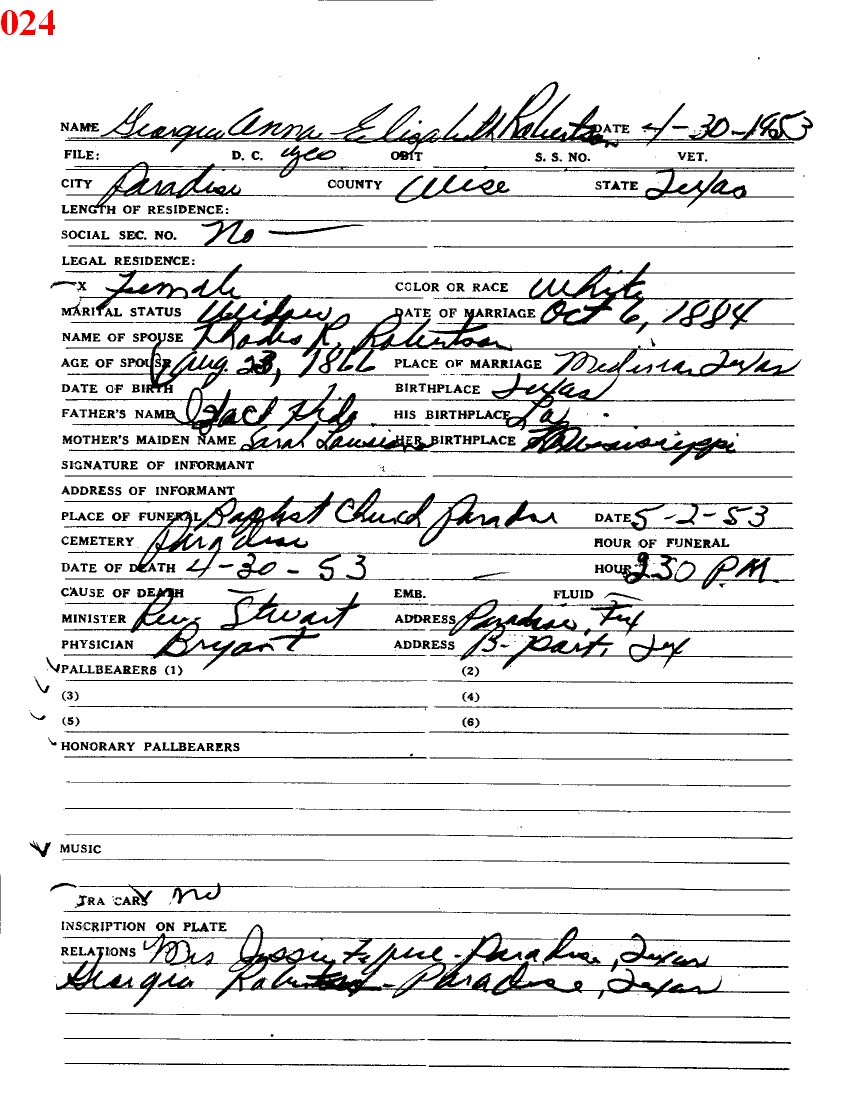 024
NAME Georgia Anna Elizabeth Robertson DATE 4-30-1953
FILE: D. C. yes OBIT S. S. NO. VET.
CITY Paradise COUNTY Wise STATE Texas
LENGTH OF RESIDENCE:
SOCIAL SEC. NO. No
LEGAL RESIDENCE:
X Female COLOR OR RACE White
MARITAL STATUS Widow DATE OF MARRIAGE Oct 6, 1884
NAME OF SPOUSE Rhodes R. Robertson
AGE OF SPOUSE Aug. 23, 1866 PLACE OF MARRIAGE Medina, Texas
DATE OF BIRTH BIRTHPLACE Texas
FATHER'S NAME HIS BIRTHPLACE La
MOTHER'S MAIDEN NAME Sarah HER BIRTHPLACE Mississippi
SIGNATURE OF INFORMANT
ADDRESS OF INFORMANT
PLACE OF FUNERAL Baptist Church Paradise DATE 5-2-53
CEMETERY Paradise HOUR OF FUNERAL
DATE OF DEATH 4-30-53 HOUR 2:30 P.M.
CAUSE OF DEATH EMB. FLUID
MINISTER Rev. Stewart ADDRESS Paradise, Tex
PHYSICIAN Bryant ADDRESS B-port, Tex
PALLBEARERS (1) (2)
(3) (4)
(5) (6)
HONORARY PALLBEARERS
MUSIC
TRA CARS no
INSCRIPTION ON PLATE
RELATIONS Mrs Jessie - Paradise, Texas
Georgia Robertson - Paradise, Texas